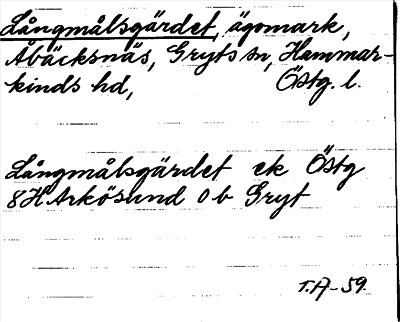 Långmålsgärdet, ägomark,
Åbäcksnäs, Gryts sn, Hammar-
kinds hd, Östg. l.
Långmålsgärdet ek Östg
8H Arkösund 0 b Gryt
T.A-59.